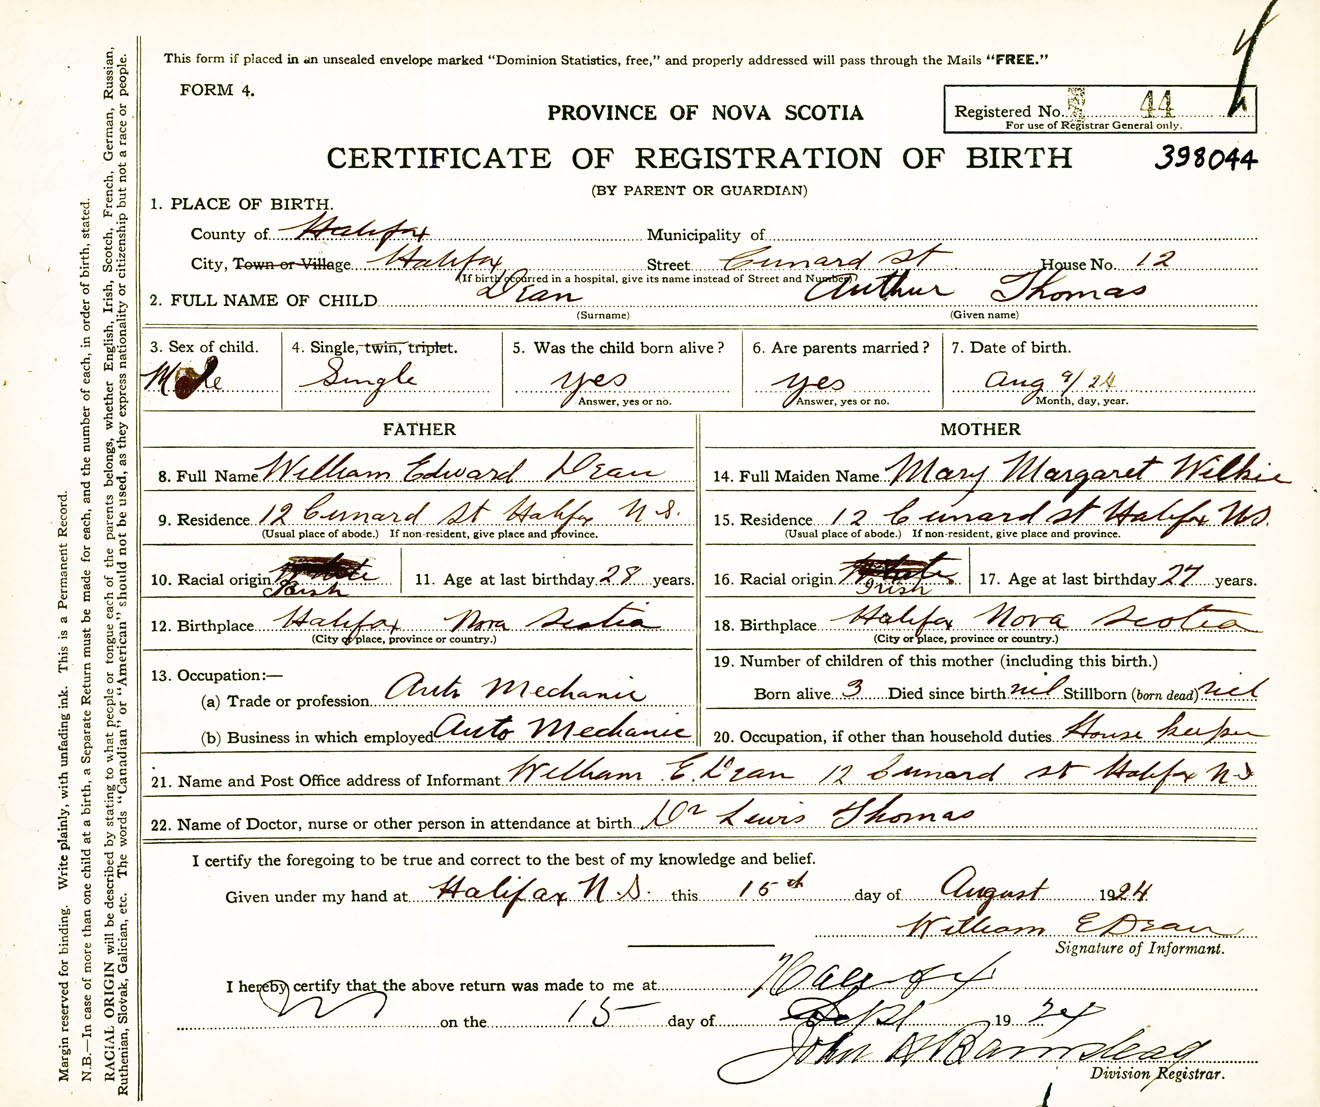 This form if placed in an unsealed envelope marked "Dominion Statistics, free," and properly addressed will pass through the Mails "FREE."
FORM 4.
PROVINCE OF NOVA SCOTIA
Registered No. 44
For use of Registrar General only.
CERTIFICATE OF REGISTRATION OF BIRTH
398044
(BY PARENT OR GUARDIAN)
1. PLACE OF BIRTH.
County of Halifax Municipality of
City, Town or Village Halifax Street Cunard St House No. 12
(If birth occurred in a hospital, give its name instead of Street and Number)
2. FULL NAME OF CHILD Dean Arthur Thomas
(Surname) (Given name)
3. Sex of child. 4. Single, twin, triplet. 5. Was the child born alive? 6. Are parents married? 7. Date of birth.
Male Single yes yes Aug 9/24
Answer, yes or no. Answer, yes or no. Month, day, year.
FATHER MOTHER
8. Full Name William Edward Dean 14. Full Maiden Name Mary Margaret Wilkie
9. Residence 12 Cunard St Halifax N.S. 15. Residence 12 Cunard st Halifax N.S.
(Usual place of abode.) If non-resident, give place and province. (Usual place of abode.) If non-resident, give place and province.
10. Racial origin White 11. Age at last birthday 28 years. 16. Racial origin White 17. Age at last birthday 27 years.
Irish Irish
12. Birthplace Halifax Nova Scotia 18. Birthplace Halifax Nova Scotia
(City or place, province or country.) (City or place, province or country.)
13. Occupation:— 19. Number of children of this mother (including this birth.)
(a) Trade or profession Auto Mechanic Born alive 3 Died since birth nil Stillborn (born dead) nil
(b) Business in which employed Auto Mechanic 20. Occupation, if other than household duties House keeper
21. Name and Post Office address of Informant William E. Dean 12 Cunard st Halifax N.S
22. Name of Doctor, nurse or other person in attendance at birth Dr Lewis Thomas
I certify the foregoing to be true and correct to the best of my knowledge and belief.
Given under my hand at Halifax N.S. this 15th day of August 1924
William E Dean
Signature of Informant.
I hereby certify that the above return was made to me at Halifax
on the 15 day of Sept 1924
John A
Division Registrar.
Margin reserved for binding. Write plainly, with unfading ink. This is a Permanent Record.
N.B.—In case of more than one child at a birth, a Separate Return must be made for each, and the number of each, in order of birth, stated.
RACIAL ORIGIN will be described by stating to what people or tongue each of the parents belongs, whether English, Irish, Scotch, French, German, Russian,
Ruthenian, Slovak, Galician, etc. The words "Canadian" or "American" should not be used, as they express nationality or citizenship but not a race or people.